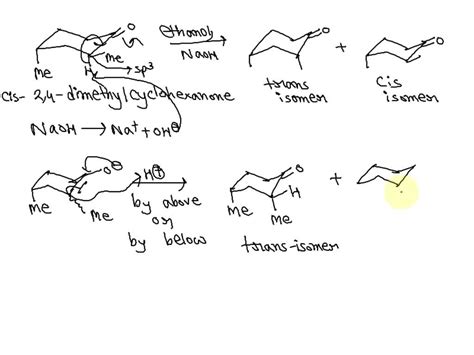 O ethanol O + O
NaOH
Me H Me
sp³ trans cis
Cis- 2,4-dimethylcyclohexanone isomer isomer
NaOH → Na⁺ + OH⊖
O⊖ H⊕ O +
Me Me by above Me H
or Me
by below trans-isomer